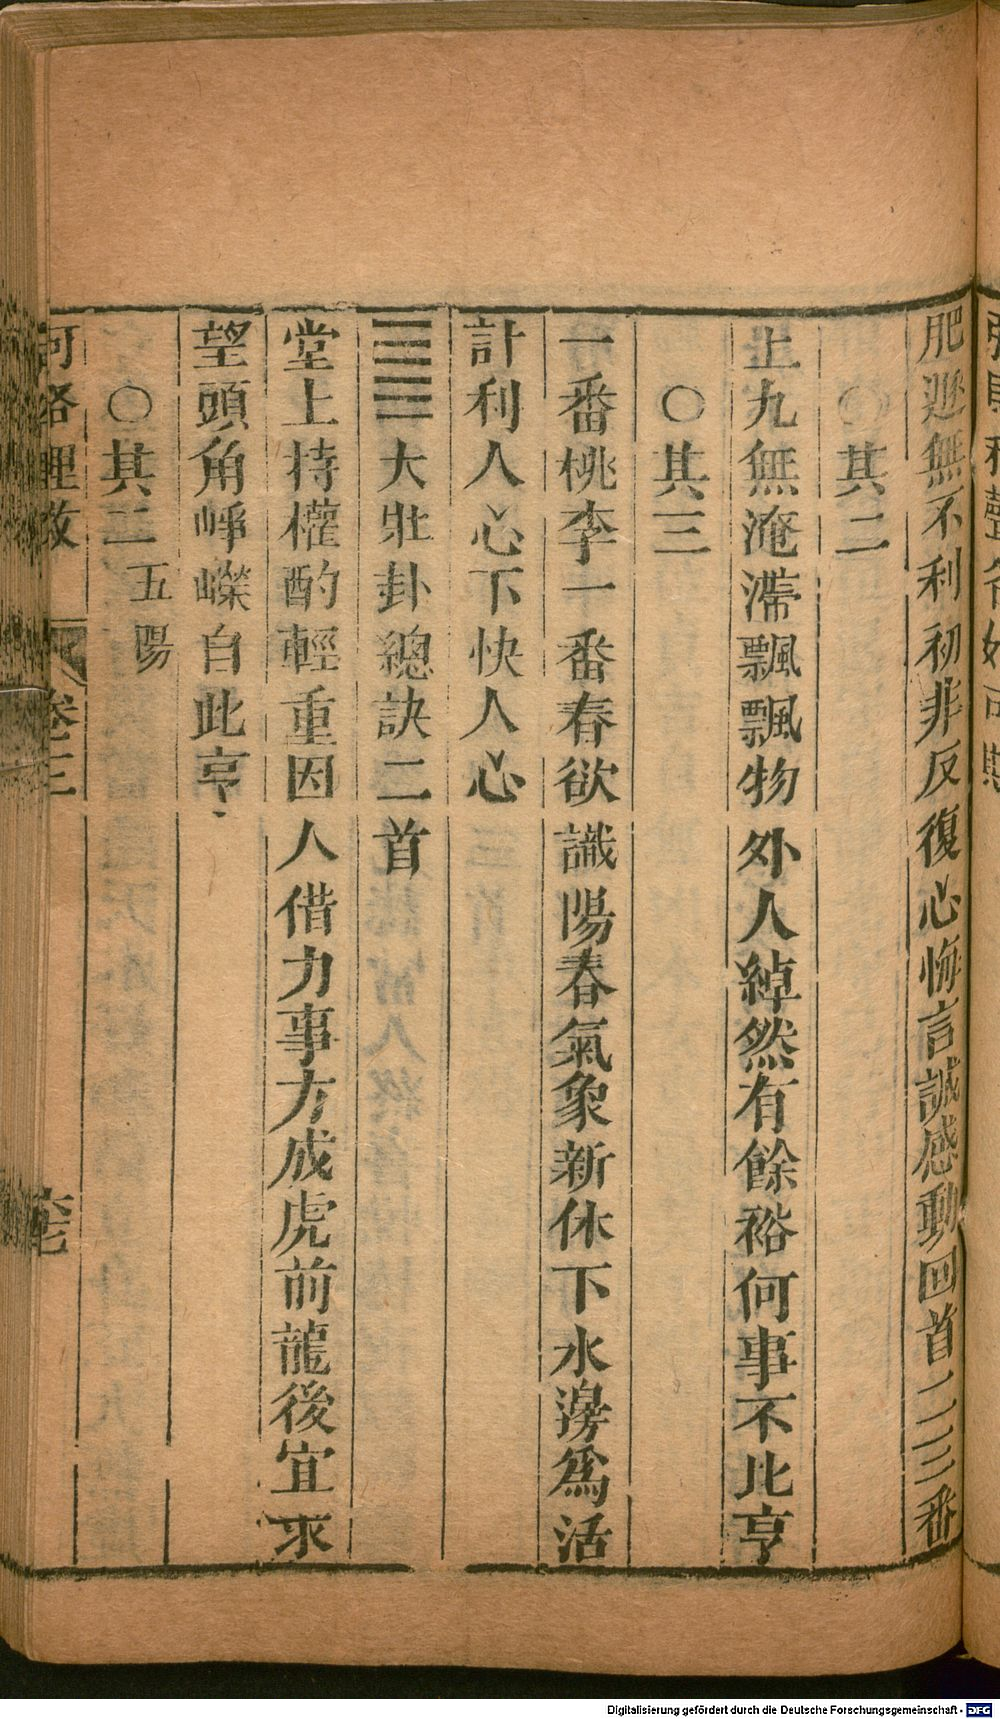 肥遯無不利初非反復心悔言誠感動回首二三番
○其二
上九無淹滯飄飄物外人綽然有餘裕何事不比亨
○其三
一番桃李一番春欲識陽春氣象新休下水邊為活
計利人心下快人心
大壯卦總訣二首
堂上持權酌輕重因人借力事方成虎前龍後宜求
望頭角崢嶸自此亨
○其二 五陽
河洛理数 卷三
Digitalisierung gefördert durch die Deutsche Forschungsgemeinschaft - DFG